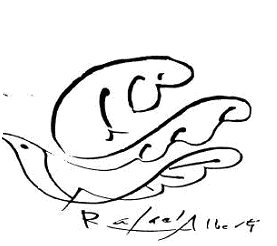 Rafael Alberti